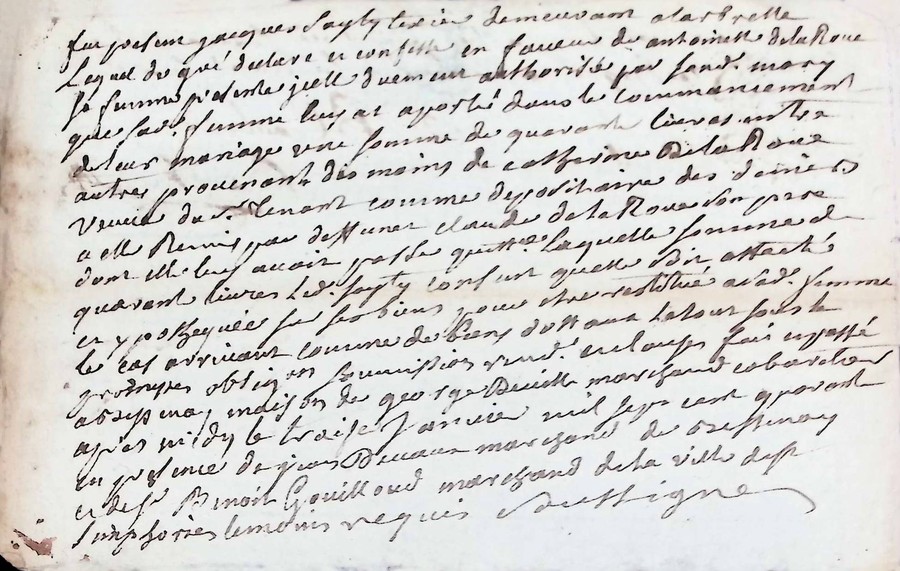 fut present jacques Sayty tixier demeurant a larbrelle
Lequel de gré declare et confesse en faveur de antoinette delaRoue
sa femme presente jcelle duement authorisée par sond. mary
que sad. femme luy at aporté dans le commancement
de leur mariage une somme de quarante livres entre
autres provenant des mains de catherine DelaRoue
veuve du sr. tenant comme depositaire des deniers
a elle Remis par deffunct claude delaRoue son pere
dont elle luy avoit passé quittce. laquelle somme de
quarante livres Led. Sayty consent quelle soit affecté
et ypothequée sur ses biens pour etre restitué a lad. femme
le cas arrivant comme de biens dottaux le tout sous les
promesses obligons soumissions renond. et clauses fait et passé
a bessenay maison de george maRchand cabaretier
apres midy le traise Janvier mil sept cent quarante
en presence de jean Devaux marchand de bessenay
et de sr Benoit Gouilloud marchand de la ville de st
simphorien temoins requis Soussigné